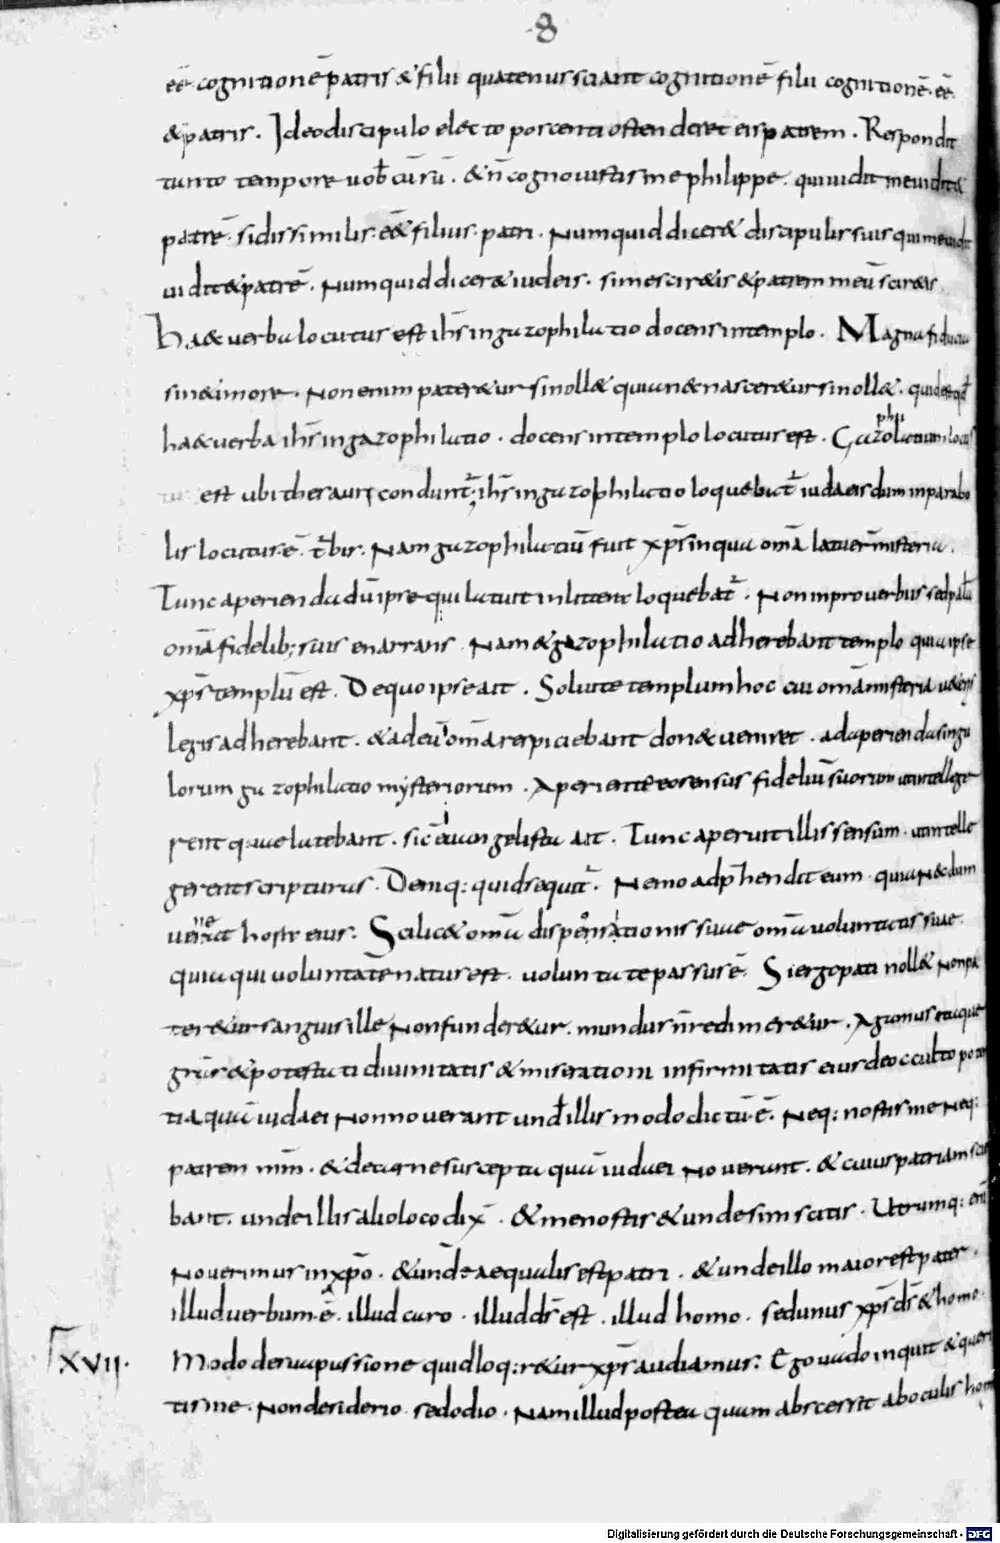 8
eē cognitionē patris & filii quatenus sciant cognitionē filii cognitionē. eē
& patris. Ideo discipulo electo poscenti ostenderet eis patrem. Respondit
tanto tempore vob cū sū. & n̄ cognovistis me philippe. qui vidit me vidit &
patrē. si dissimilis. eē& filius. patri. Numquid dicer& discipulis suis qui me vidit
vidit & patrē. Numquid dicer& iudeis. si me scir&is & patrem meū scir&is.
Haec verba locutus est ih̄s in gazophilatio docens in templo. Magna fiducia
sine timore. Non enim pater&ur si noll& qui a n& nascer&ur si noll&. quid est qđ
ha& verba ih̄s in gazophilatio. docens in templo locutus est. Gazophilatium locus
est ubi thesauri conduntr; ih̄s in gazophilatio loquebatr iudaeis dum in parabo
lis locutus. ē. Nam gazophilatiū fuit xp̄s in quo om̄a latuer̄ misteria.
Tunc aperienda dū ipse qui latuit in loquebatr. Non in proverbiis sed palā
om̄a fidelib; suis enarrans. Nam & gazophilatio adherebant templo quia ipse
xp̄s templū est. De quo ipse ait. Solvite templum hoc cui om̄a misteria
legis adherebant. & ad eū om̄a respiciebant donec veniret. ad aperienda singu
lorum gazophilatio mysteriorum. Aperiente eo sensus fideliū suorum ut intellege
rent quae latebant. sic evangelista ait. Tunc aperuit illis sensum. ut intelle
gerent scripturas. Deniq: quid sequitr. Nemo adp̄hendit eum. quia necdum
venerat hora eius. Scilic& om̄a dispensationis suae om̄a voluntatis suae.
quia qui voluntate natus est. voluntate passus ē. Si ergo pati noll& non pa
ter&ur sanguis ille non funder&ur. mundus n̄ redimer&ur. Agamus itaque
gr̄as & potestati divinitatis & miserationi infirmitatis eius de occulto poten
tia quā iudaei non noverant und illis modo dictū. ē. Neq: nostis me neq:
patrem mm̄. & de carne suscepta quā iudaei noverunt. & cuius patriam scie
bant. unde illis alio loco dix̄. & me nostis & unde sim scitis. Utrumq:
Noverimus in xp̄o. & unde aequalis est patri. & unde illo maior est pater.
illud verbum. ē. illud caro. illud d̄s est. illud homo. sed unus xp̄s d̄s & homo.
XVII. Modo de sua passione quid loq:r&ur xp̄s audiamus: Ego vado inquit & quaeri
tis me. Non desiderio. sed odio. Nam illud postea quam abscessit ab oculis hom
Digitalisierung gefördert durch die Deutsche Forschungsgemeinschaft - DFG